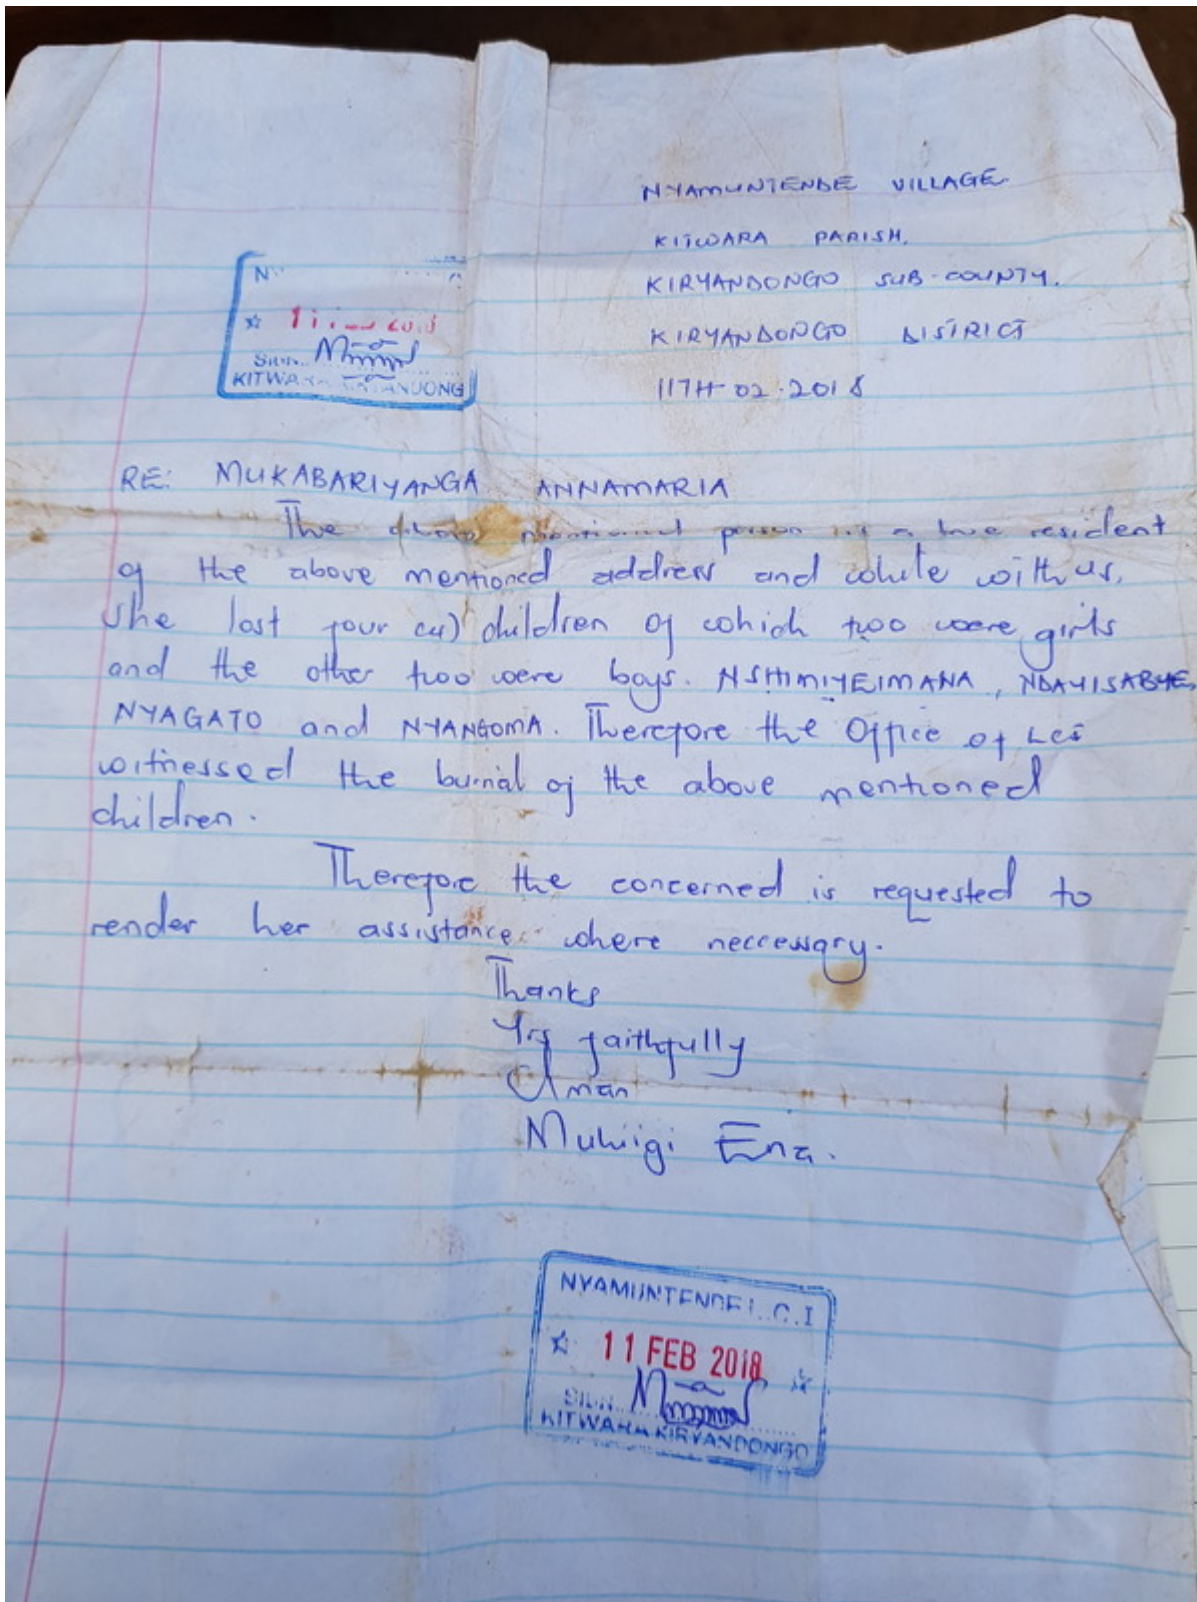 NYAMUNTENDE VILLAGE
KITWARA PARISH,
KIRYANDONGO SUB-COUNTY.
KIRYANDONGO DISTRICT
11TH-02-2018
N
2018
SIGN
KITWARA KIRYANDONG
RE: MUKABARIYANGA ANNAMARIA
The above mentioned person is a true resident
of the above mentioned address and while with us,
she lost four (4) children of which two were girls
and the other two were boys. NSHIMIYEIMANA, NDAYISABYE,
NYAGATO and NYANGOMA. Therefore the Office of LCI
witnessed the burial of the above mentioned
children.
Therefore the concerned is requested to
render her assistance where neccessary.
Thanks
Yrs faithfully
C/man
NYAMUNTENDE L.C.I
11 FEB 2018
SIGN
KITWARA KIRYANDONGO